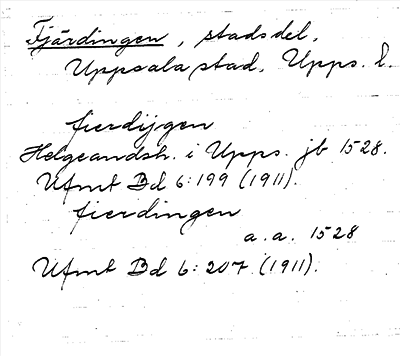 Fjärdingen, stadsdel,
Uppsala stad, Upps. l.
fierdijgen
Helgeandsh. i Upps. jb 1528.
Ufmt Bd 6:199 (1911).
fierdingen
a.a. 1528
Ufmt Bd 6:207 (1911).